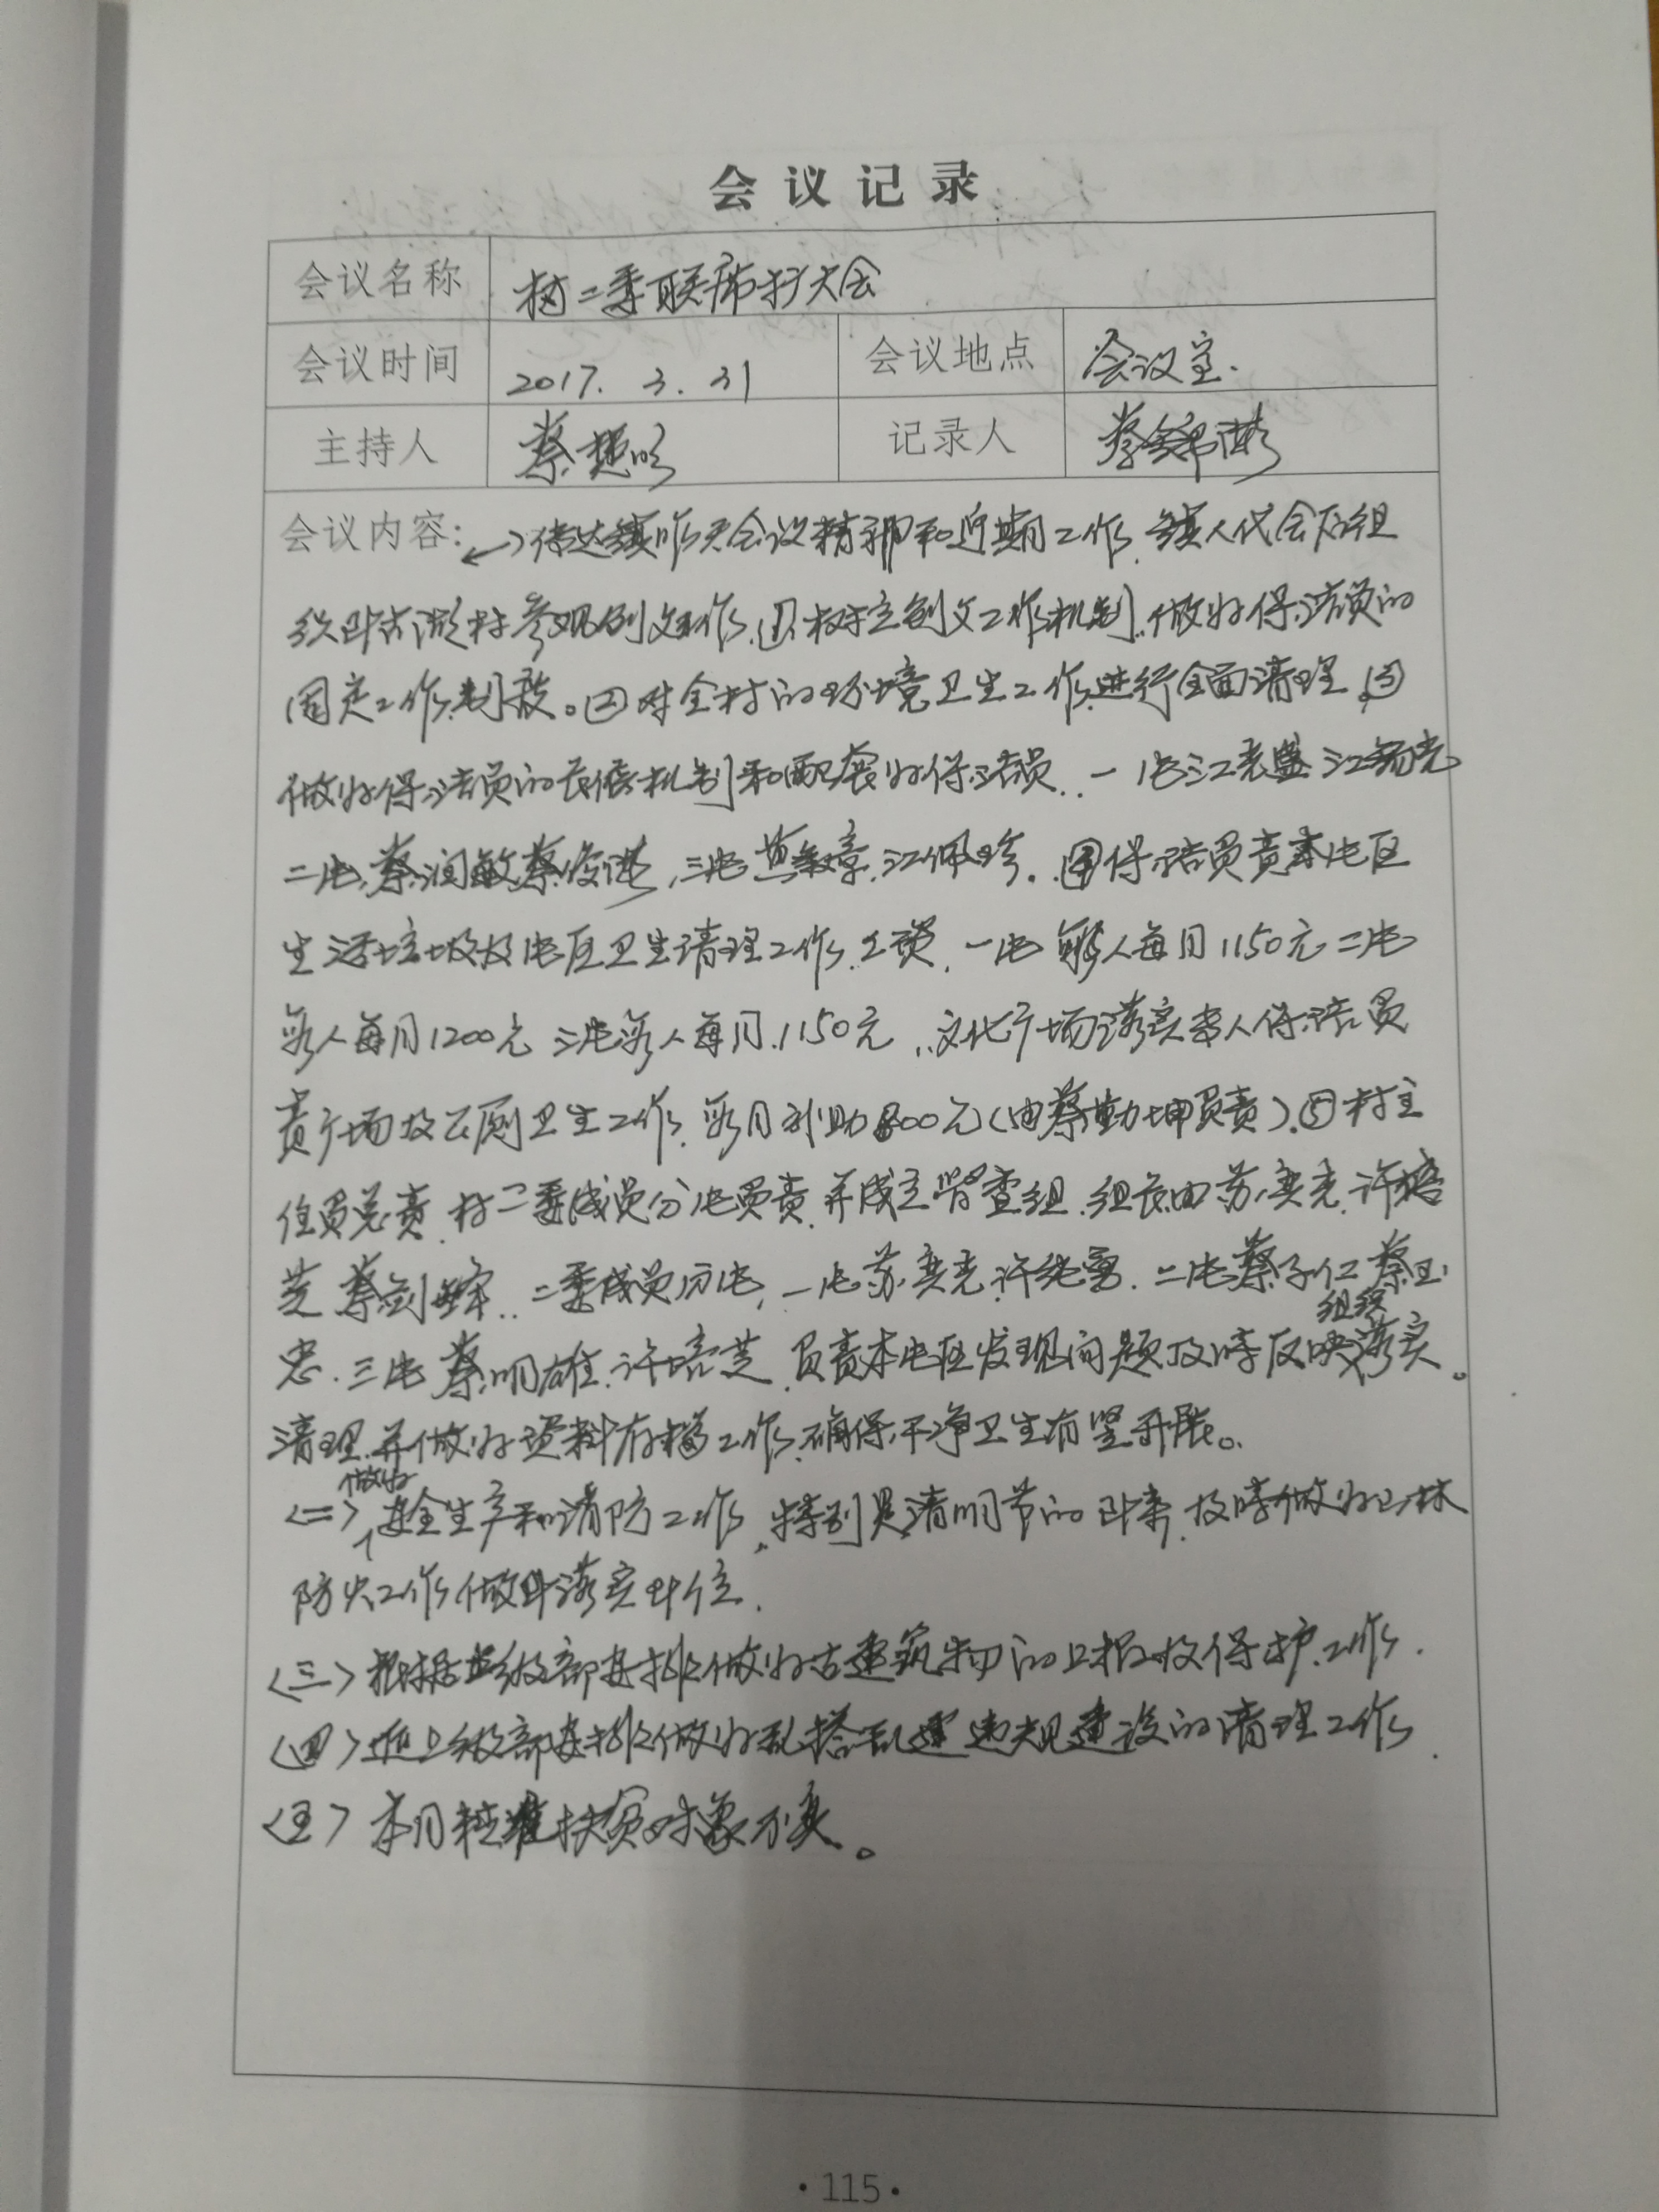 会议记录
会议名称 村二委联席扩大会
会议时间 2017. 3. 31 会议地点 会议室.
主持人 蔡楚明 记录人 蔡锦彬
会议内容: 传达镇昨天会议精神和近期工作, 镇人代会后组
织到古湖村参观创文工作, ①树立创文工作机制, 做好保洁员的
固定工作制救。②对全村的环境卫生工作进行全面清理, ③
做好保洁员的长偿机制和配套好保洁员.. 一片江老盛 江锡光
二片, 蔡润敏 蔡俊洪, 三片 黄教章, 江佩珍. ④保洁员责本片区
生活垃圾及片区卫生清理工作, 工资, 一片 每人每月1150元 二片
每人每月1200元 三片每人每月1150元, 文化广场落实专人保洁员
责广场及公厕卫生工作, 每月补助800元(由蔡勤坤负责). ⑤村主
任负总责, 村二委成员分片负责, 并成立督查组, 组长由苏奕光, 许培
芝 蔡剑峰.. 二委成员分片, 一片苏奕光, 许纯勇. 二片蔡子仁 蔡玉
忠. 三片 蔡明雄. 许培芝, 负责本片区发现问题及时反映组织落实。
清理, 并做好资料存档工作, 确保干净卫生有望开展。
<二>做好安全生产和消防工作, 特别是清明节的到来, 及时做好山林
防火工作做到落实到位.
<三>根据上级部安排做好古建筑物的上报及保护工作.
<四>按上级部安排做好乱搭乱建违规建设的清理工作.
<五>本月精准扶贫对象不变。
·115·